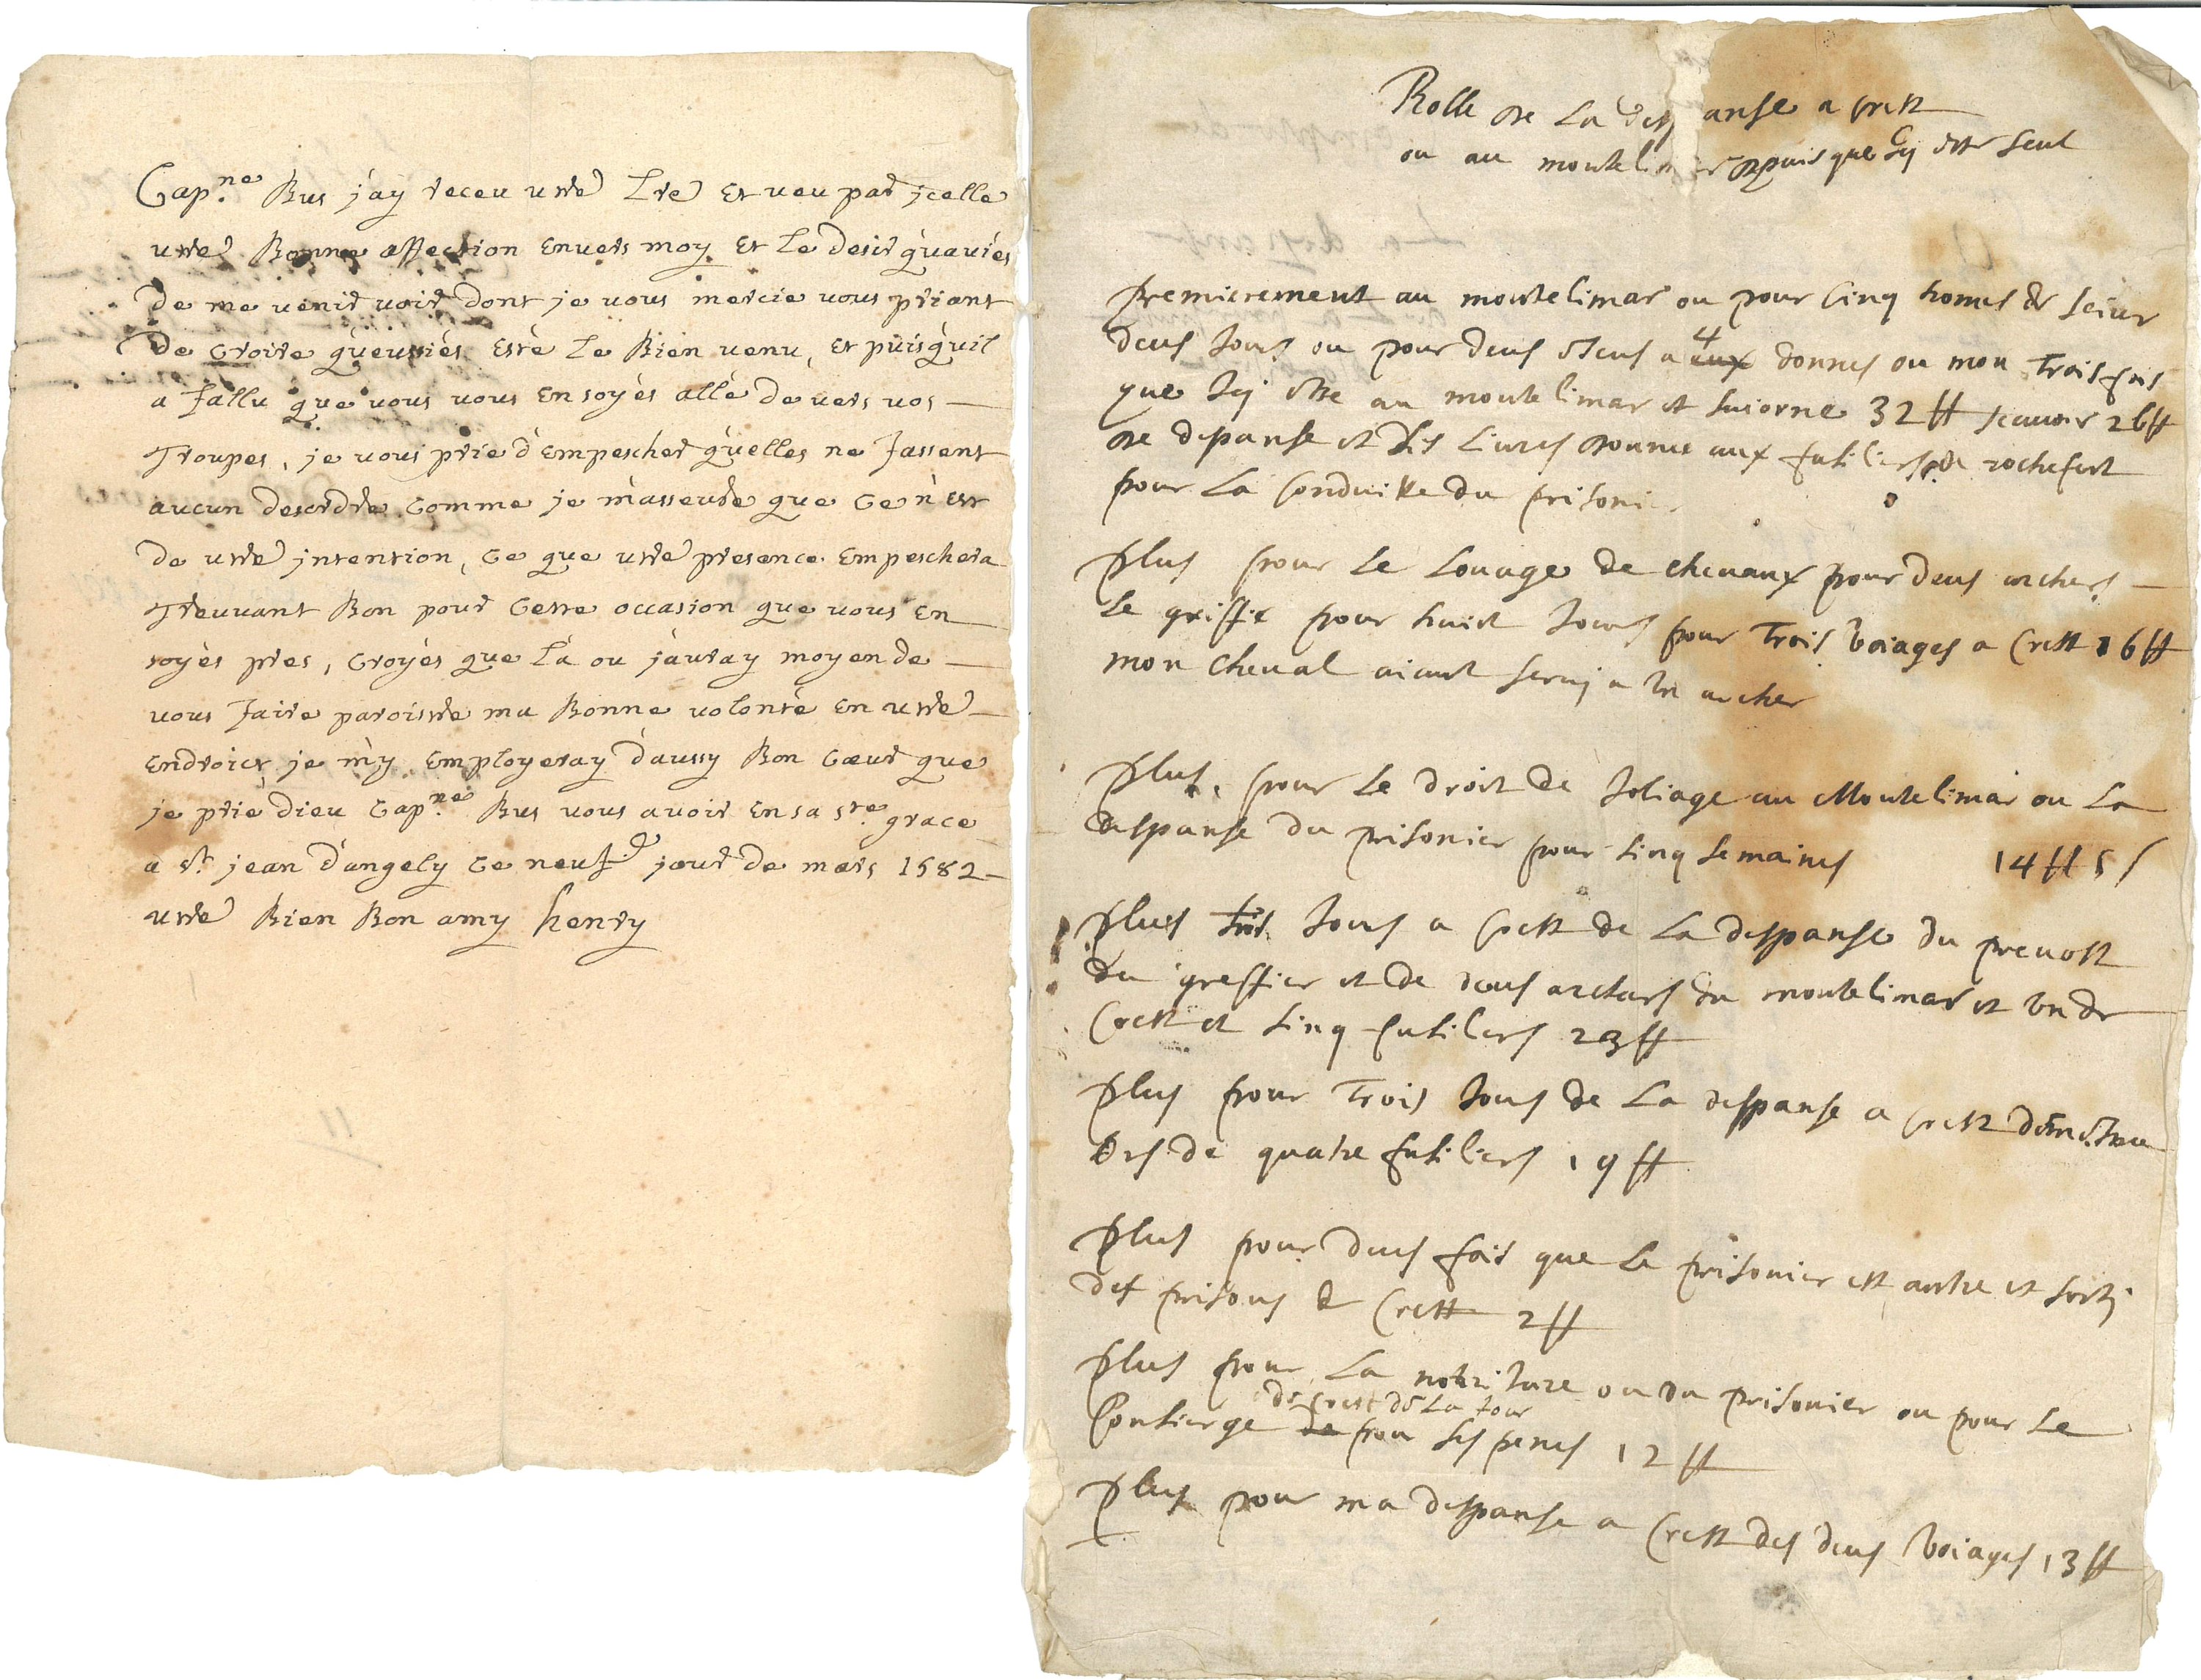 Cap.ne Bus j'ay receu vtre Ltre Et veu par jcelle
vtre Bonne affection Envers moy Et Le desir qu'aviés
De me venir voir Dont je vous mercie vous priant
De croire qu'eussiés Esté Le Bien venu, Et puisqu'il
a fallu que vous vous En soyés allé De vers vos
Troupes, je vous prie d'Empescher qu'elles ne fassent
aucun desordre Comme je m'asseure que Ce n'Est
de vtre jntention, Ce que vtre presence Empeschera
Treuvant Bon pour Cette occasion que vous En
soyés pres, Croyés que Là ou j'auray moyen de
vous faire paroistre ma Bonne volonté En vtre
Endroict je m'y Employeray D'aussy Bon Coeur que
je prie Dieu Cap.ne Bus vous avoir En sa ste. grace
a St. jean d'angely Ce neufe. jour De mars 1582
vtre Bien Bon amy henry
Rolle de La desp anse a Crest
ou au montelimar depuis que jy seul
premierement au montelimar ou pour cinq homes
deus jours ou pour deus a 4 aux donnes ou mon trois fois
que jy este au montelimar et sejorne 32 ₶ scavoir 26 ₶
de depanse et sis livres donnes aux fusiliers de rochefort
pour La Conduitte du prisonier
plus pour Le Louage de chevaux pour deus archers
Le greffié pour huict jours pour trois voiages a Crest 16 ₶
mon cheval aiant servi a un archer
plus pour Le droit de joliage au Montelimar ou La
despanse du prisonier pour sinq semaines 14 ₶ 5 s
plus jours a Crest de La despanse du prevost
du greffier et de deus archers du montelimar et un de
Crest et sinq fusiliers 23 ₶
plus pour trois jours de La despanse a Crest
de quatre fusiliers 19 ₶
plus pour deus fois que Le prisonier est antré et sorti
des prisons de Crest 2 ₶
plus pour La nouriture ou du prisonier ou pour Le
de Crest de La tour
Consierge de pour ses penes 12 ₶
plus pour ma despanse a Crest des deus voiages 13 ₶